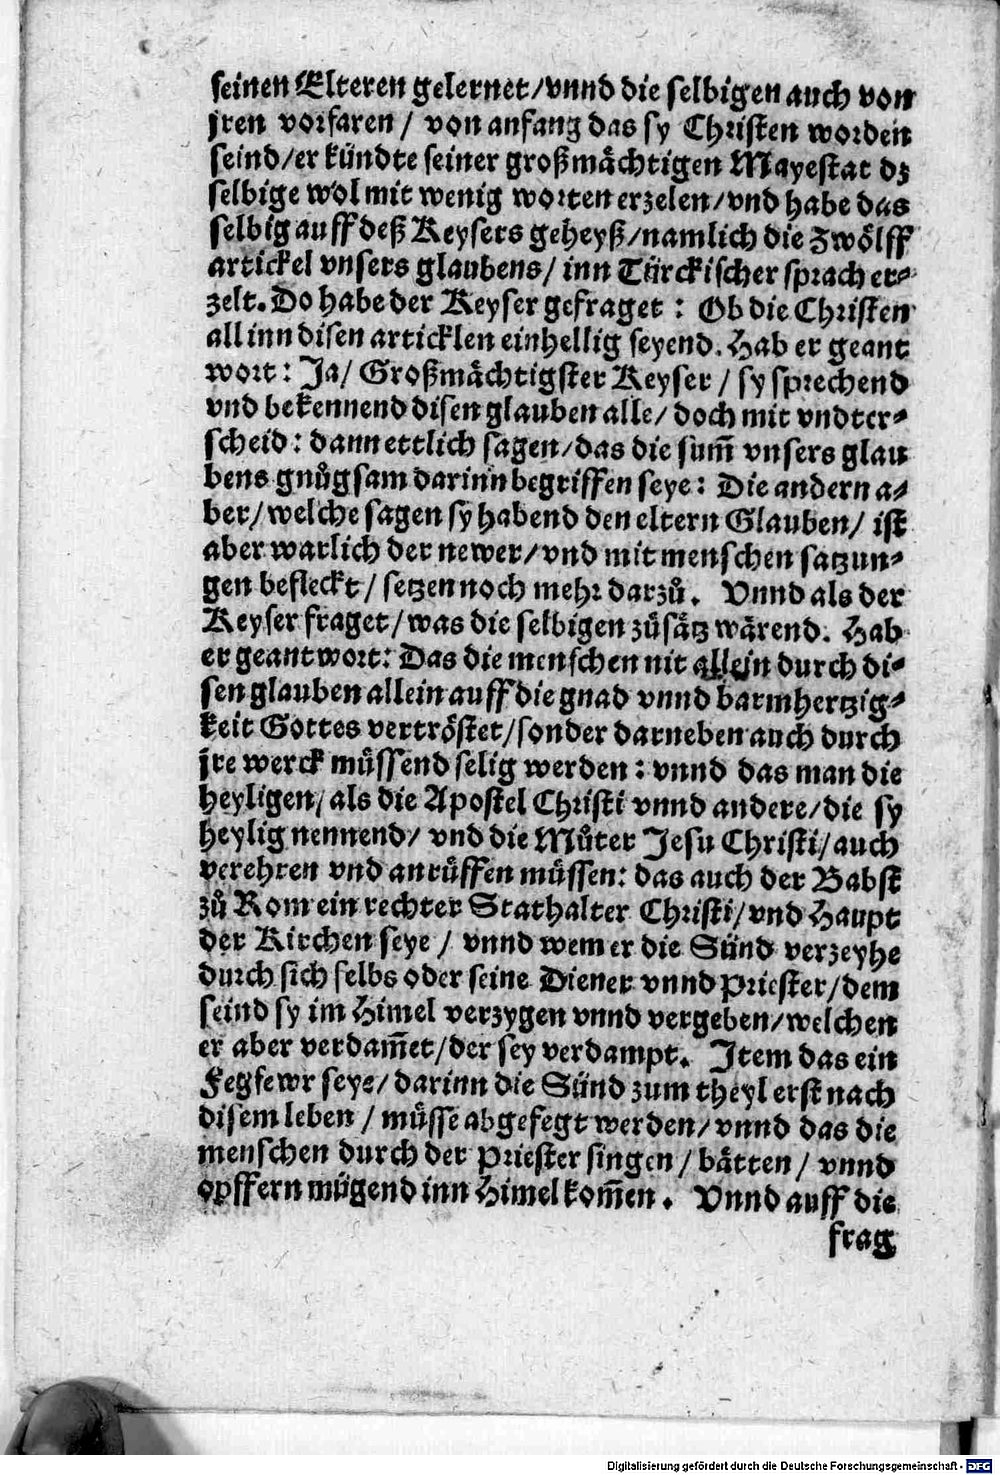 seinen Elteren gelernet/vnnd die selbigen auch von
jren vorfaren / von anfang das sy Christen worden
seind/er kündte seiner großmächtigen Mayestat dz
selbige wol mit wenig worten erzelen/vnd habe das
selbig auff deß Keysers geheyß/namlich die Zwölff
artickel vnsers glaubens/ inn Türckischer sprach er-
zelt. Do habe der Keyser gefraget : Ob die Christen
all inn disen articklen einhellig seyend. Hab er geant
wort: Ja/ Großmächtigster Keyser / sy sprechend
vnd bekennend disen glauben alle/ doch mit vndter-
scheid : dann ettlich sagen/das die sum̃ vnsers glau
bens gnůgsam darinn begriffen seye: Die andern a-
ber/welche sagen sy habend den eltern Glauben/ ist
aber warlich der newer/vnd mit menschen satzun-
gen befleckt / setzen noch mehr darzů. Vnnd als der
Keyser fraget/was die selbigen zůsätz wärend. Hab
er geantwort: Das die menschen nit allein durch di-
sen glauben allein auff die gnad vnnd barmhertzig-
keit Gottes vertröstet/sonder darneben auch durch
jre werck müssend selig werden : vnnd das man die
heyligen/als die Apostel Christi vnnd andere/die sy
heylig nennend/ vnd die Můter Jesu Christi/auch
verehren vnd anrüffen müssen: das auch der Babst
zů Rom ein rechter Stathalter Christi/vnd Haupt
der Kirchen seye / vnnd wem er die Sünd verzeyhe
durch sich selbs oder seine Diener vnnd Priester/dem
seind sy im Himel verzygen vnnd vergeben/welchen
er aber verdam̃et/der sey verdampt. Item das ein
Fegfewr seye/darinn die Sünd zum theyl erst nach
disem leben / müsse abgefegt werden/vnnd das die
menschen durch der Priester singen / bätten / vnnd
opffern mügend inn Himel kom̃en. Vnnd auff die
frag
Digitalisierung gefördert durch die Deutsche Forschungsgemeinschaft - DFG